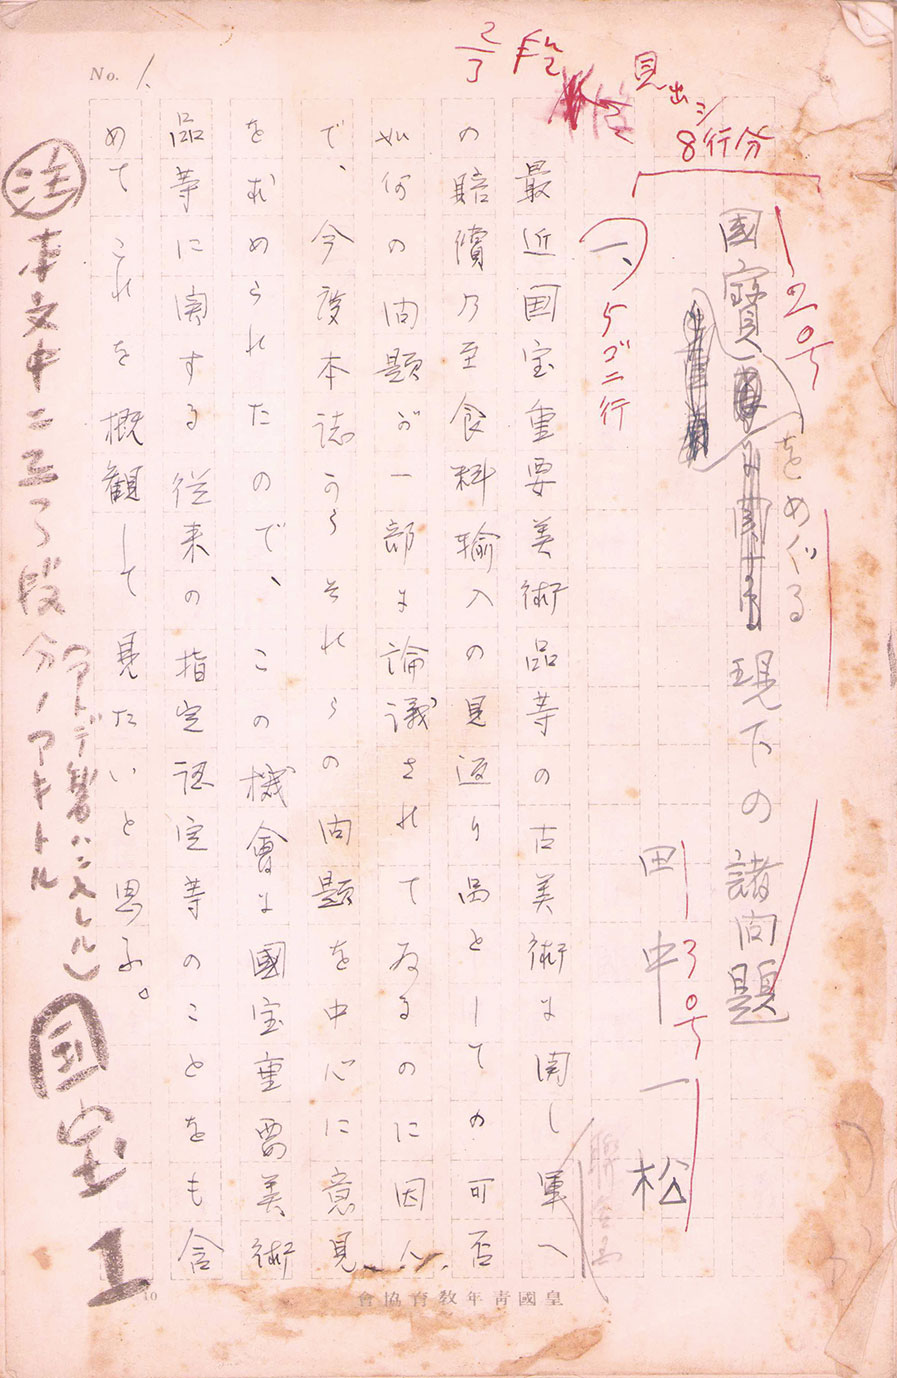 No. 1.
見出シ
8行分
国寶をめぐる現下の諸問題
田中一松
一、
5ゴ二行
最近国宝重要美術品等の古美術に関し軍へ
の賠償乃至食料輸入の見返り品としての可否
如何の問題が一部に論議されてゐるのに因ん
で、今度本誌からそれらの問題を中心に意見
を求められたので、この機會に國宝重要美術
品等に関する従来の指定認定等のことをも含
めてこれを概観して見たいと思ふ。
注
国宝 1
皇國青年教育協會